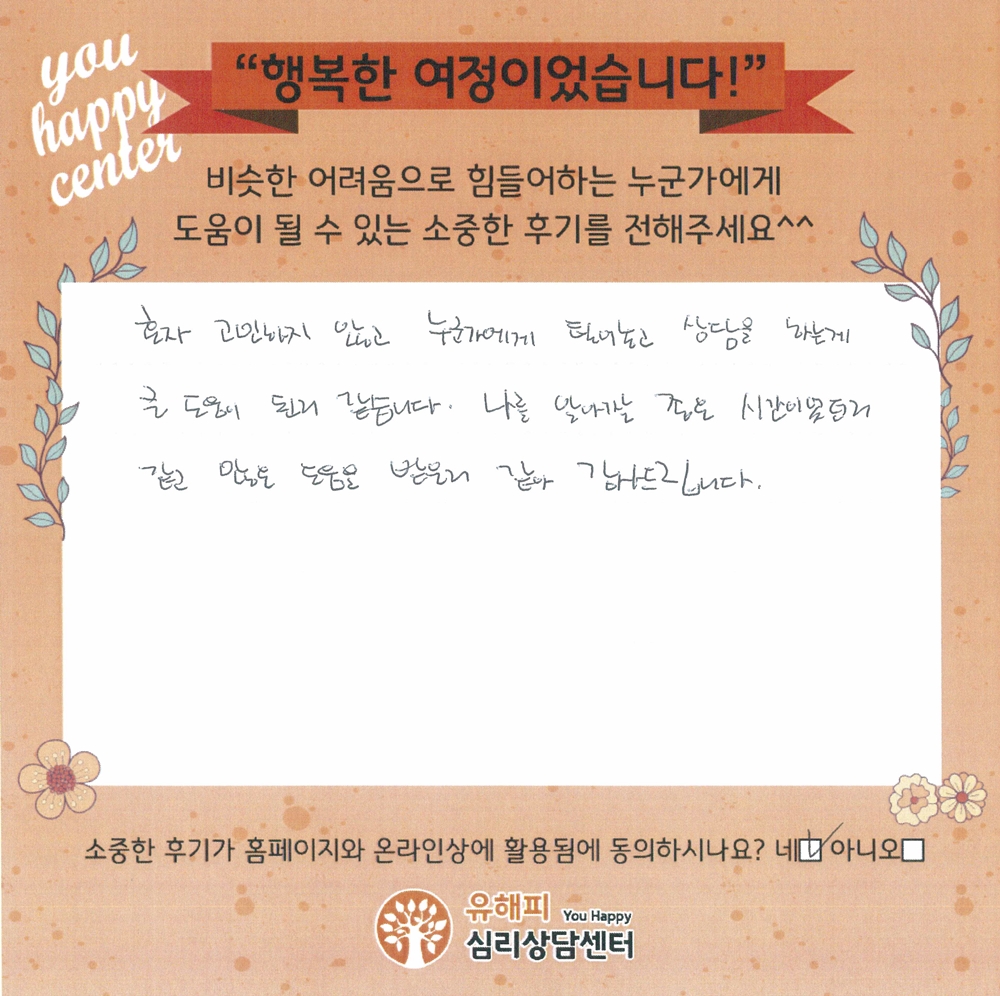 you
happy
center
“행복한 여정이었습니다!”
비슷한 어려움으로 힘들어하는 누군가에게
도움이 될 수 있는 소중한 후기를 전해주세요^^
혼자 고민하지 않고 누군가에게 털어놓고 상담을 하는게
큰 도움이 된거 같습니다. 나를 알아가는 좋은 시간이였던거
같고 많은 도움을 받은거 같아 감사드립니다.
소중한 후기가 홈페이지와 온라인상에 활용됨에 동의하시나요? 네☑ 아니오☐
유해피 You Happy
심리상담센터